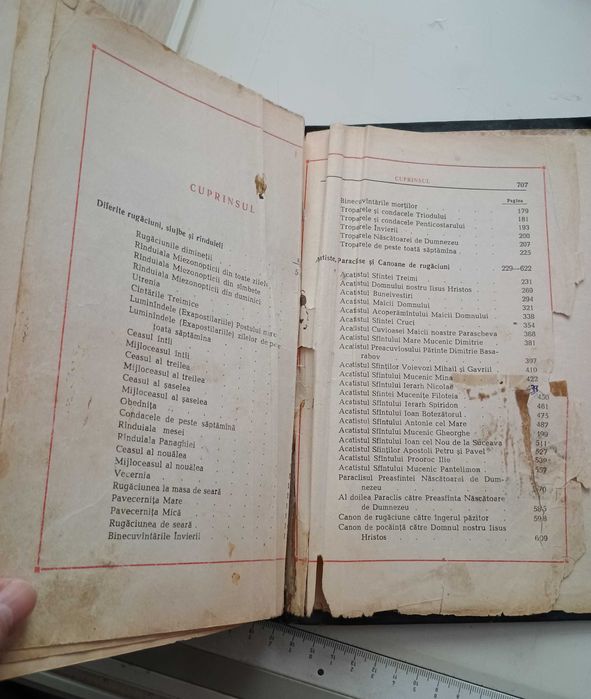 CUPRINSUL
Diferite rugăciuni, slujbe și rînduieli
Rugăciunile dimineții
Rînduiala Miezonopticii din toate zilele
Rînduiala Miezonopticii din sîmbete
Rînduiala Miezonopticii din duminici
Utrenia
Cîntările Treimice
Luminîndele (Exapostilariile) Postului mare
Luminîndele (Exapostilariile) zilelor de peste
toată săptămîna
Ceasul întîi
Mijloceasul întîi
Ceasul al treilea
Mijloceasul al treilea
Ceasul al șaselea
Mijloceasul al șaselea
Obednița
Condacele de peste săptămînă
Rînduiala mesei
Rînduiala Panaghiei
Ceasul al nouălea
Mijloceasul al nouălea
Vecernia
Rugăciunea la masa de seară
Pavecernița Mare
Pavecernița Mică
Rugăciunea de seară
Binecuvîntările Învierii
CUPRINSUL 707
Pagina
Binecuvîntările morților 179
Troparele și condacele Triodului 181
Troparele și condacele Penticostarului 193
Troparele Învierii 200
Troparele Născătoarei de Dumnezeu 207
Troparele de peste toată săptămîna 225
Paraclise și Canoane de rugăciuni 229—622
Acatistul Sfintei Treimi 231
Acatistul Domnului nostru Iisus Hristos 269
Acatistul Buneivestiri 294
Acatistul Maicii Domnului 321
Acatistul Acoperămîntului Maicii Domnului 338
Acatistul Sfintei Cruci 354
Acatistul Cuvioasei Maicii noastre Parascheva 368
Acatistul Sfîntului Mare Mucenic Dimitrie 381
Acatistul Preacuviosului Părinte Dimitrie Basa-
rabov 397
Acatistul Sfinților Voievozi Mihail și Gavriil 410
Acatistul Sfîntului Mucenic Mina 422
Acatistul Sfîntului Ierarh Nicolae
Acatistul Sfintei Mucenițe Filoteia 450
Acatistul Sfîntului Ierarh Spiridon 461
Acatistul Sfîntului Ioan Botezătorul 475
Acatistul Sfîntului Antonie cel Mare 487
Acatistul Sfîntului Mucenic Gheorghe 499
Acatistul Sfîntului Ioan cel Nou de la Suceava 511
Acatistul Sfinților Apostoli Petru și Pavel 527
Acatistul Sfîntului Prooroc Ilie 539
Acatistul Sfîntului Mucenic Pantelimon 557
Paraclisul Preasfintei Născătoarei de Dum-
nezeu 570
Al doilea Paraclis către Preasfînta Născătoare
de Dumnezeu 585
Canon de rugăciune către îngerul păzitor 598
Canon de pocăință către Domnul nostru Iisus
Hristos 609